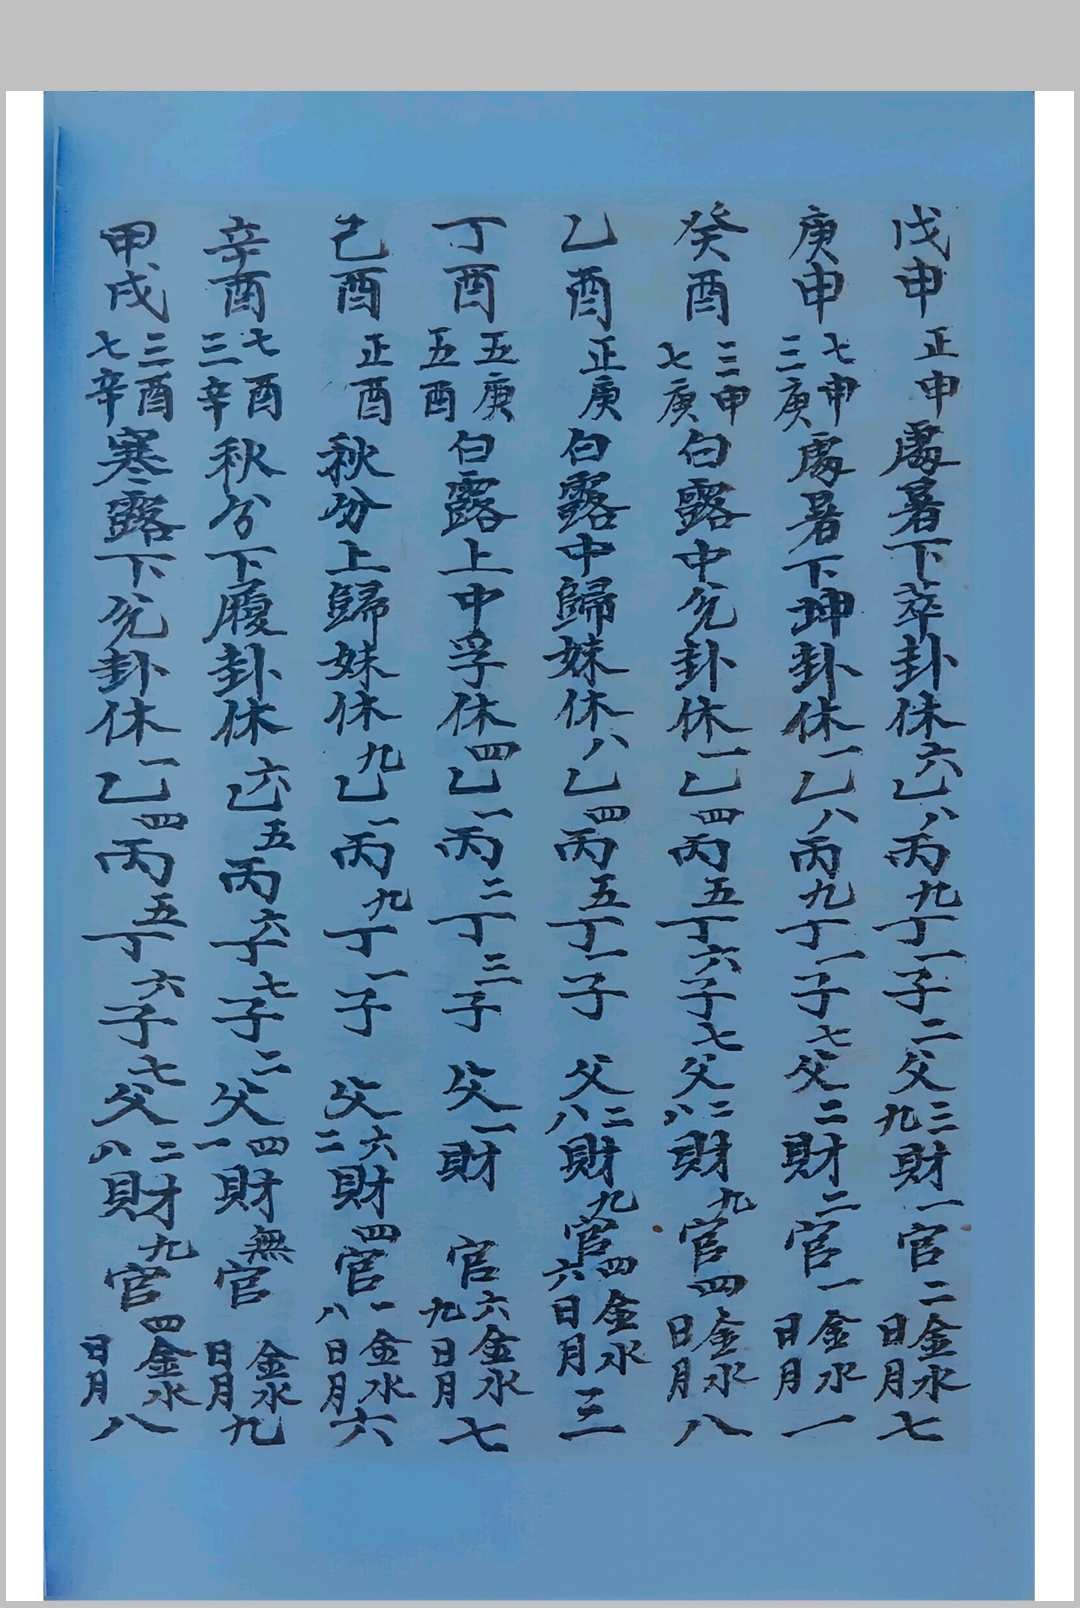 戊申正申處暑下萃卦休六乙八丙九丁一子二父三九財一官二金水日月七
庚申七申三庚處暑下坤卦休一乙八丙九丁一子七父二財二官一金水日月一
癸酉三申七庚白露中兌卦休一乙四丙五丁六子七父二八財九官四金水日月八
乙酉正庚白露中歸妹休八乙四丙五丁一子父二八財九官四六金水日月三
丁酉五庚五酉白露上中孚休四乙一丙二丁三子父一財官六九金水日月七
己酉正酉秋分上歸妹休九乙一丙九丁一子父六二財四官一八金水日月六
辛酉七酉三辛秋分下履卦休六乙五丙六子七子二父四一財無官金水日月九
甲戌三酉七辛寒露下兌卦休一乙四丙五丁六子七父二八財九官四金水日月八